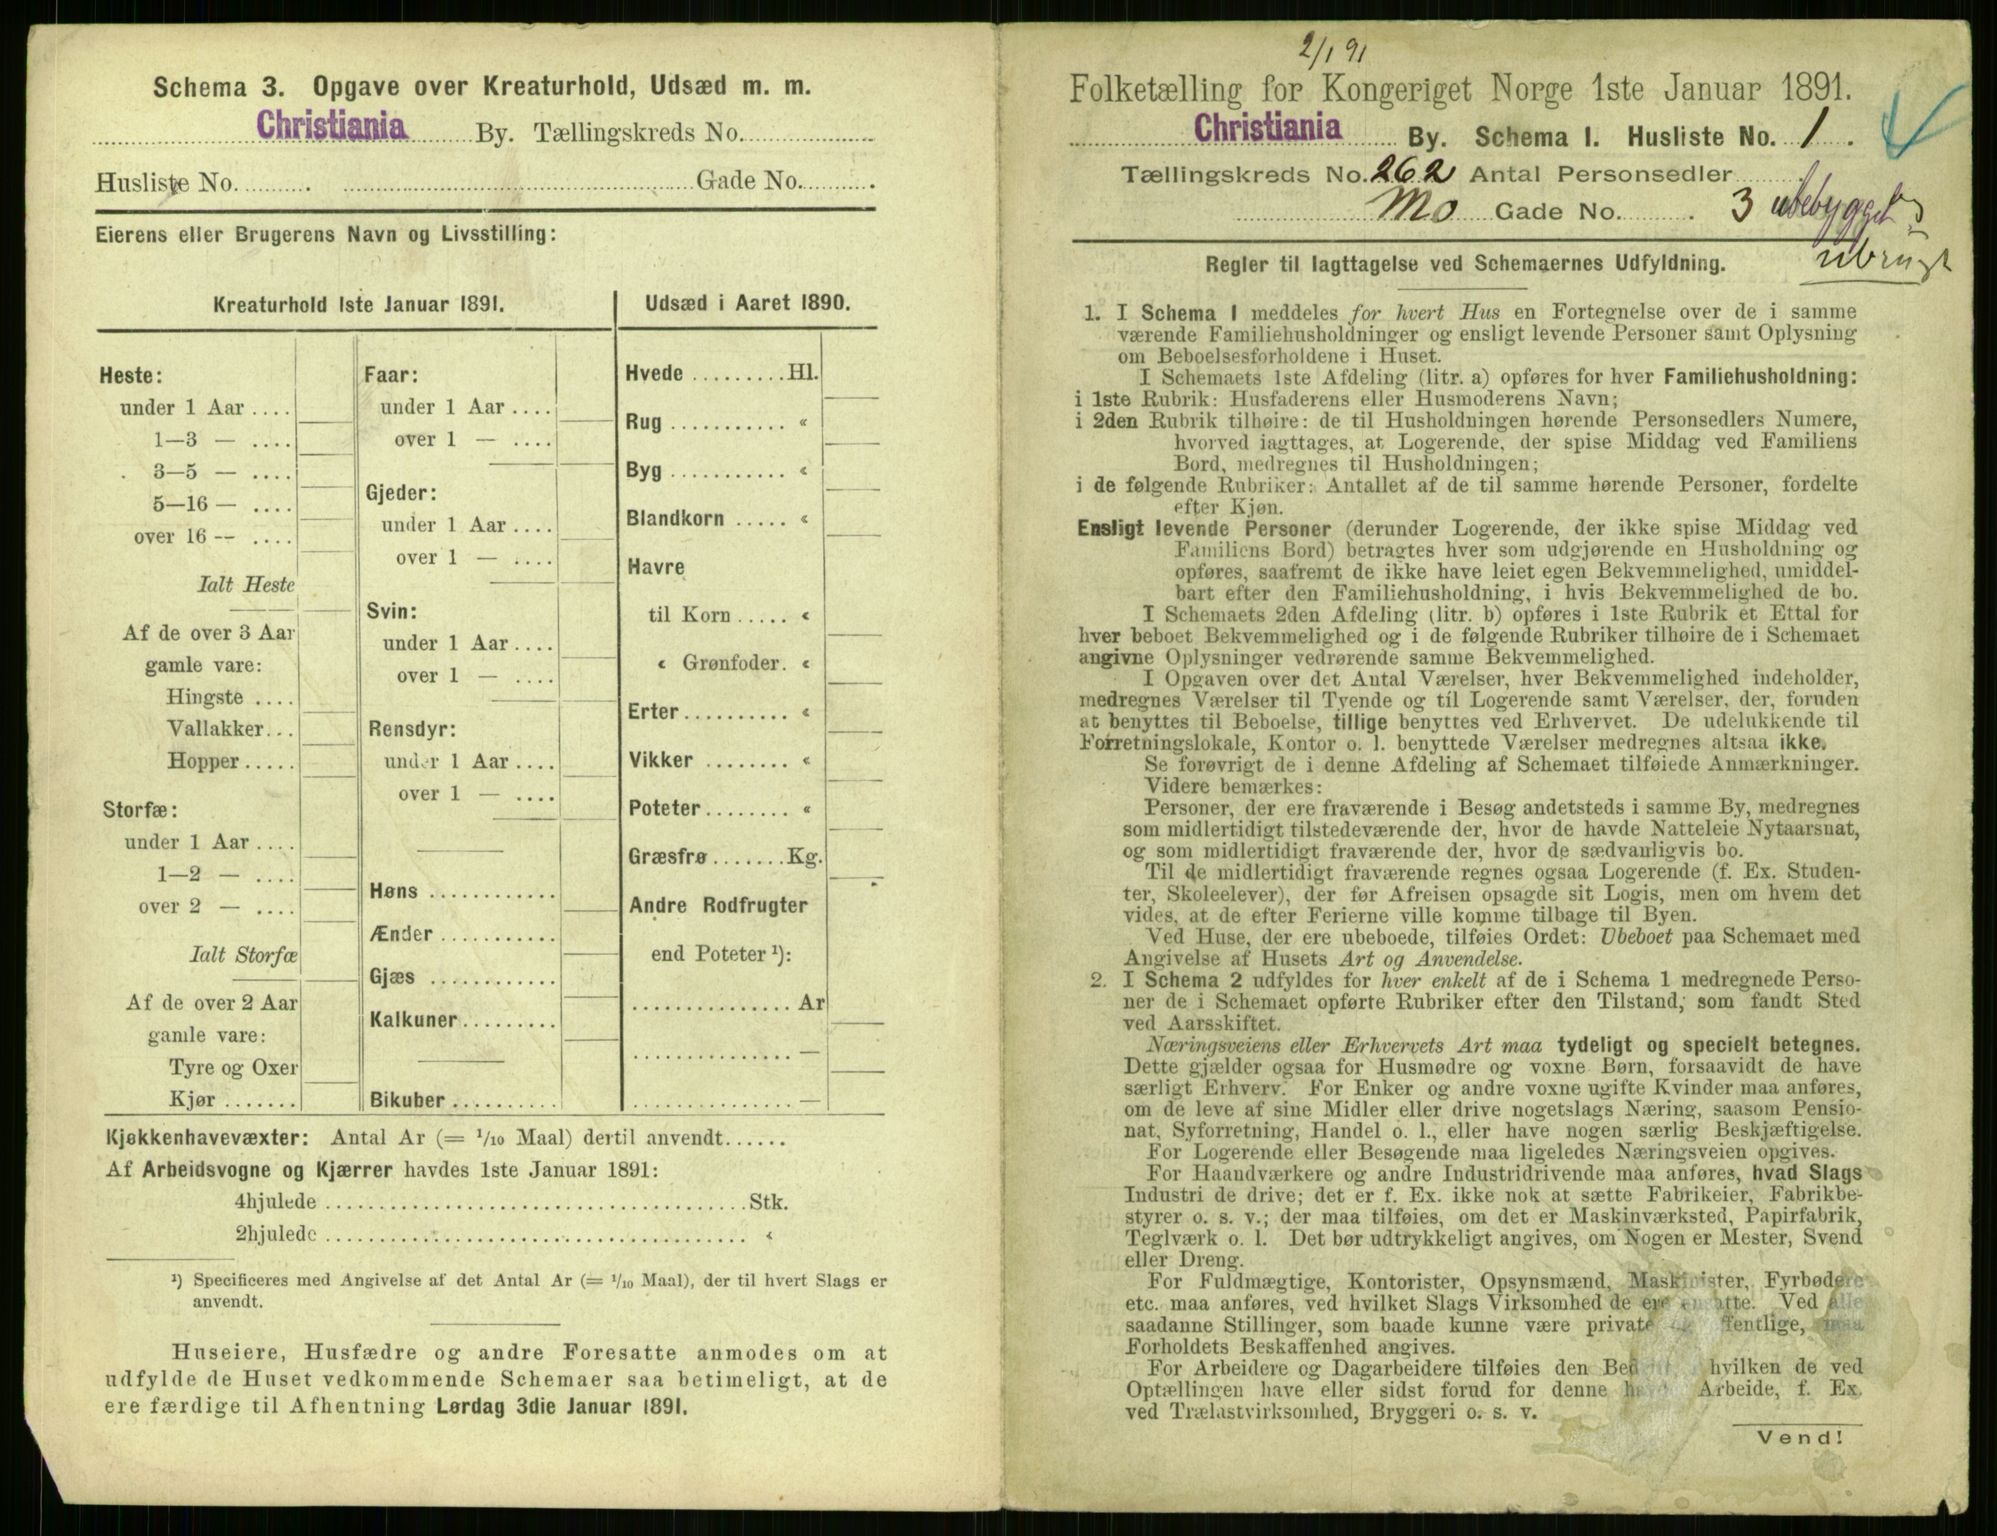 Schema 3. Opgave over Kreaturhold, Udsæd m. m.
Christiania By. Tællingskreds No.
Husliste No. Gade No.
Eierens eller Brugerens Navn og Livsstilling:
Kreaturhold 1ste Januar 1891.
Heste:
under 1 Aar
1—3 —
3—5 —
5—16 —
over 16 —
Ialt Heste
Af de over 3 Aar
gamle vare:
Hingste
Vallakker
Hopper
Storfæ:
under 1 Aar
1—2 —
over 2 —
Ialt Storfæ
Af de over 2 Aar
gamle vare:
Tyre og Oxer
Kjør
Faar:
under 1 Aar
over 1 —
Gjeder:
under 1 Aar
over 1 —
Svin:
under 1 Aar
over 1 —
Rensdyr:
under 1 Aar
over 1 —
Høns
Ænder
Gjæs
Kalkuner
Bikuber
Udsæd i Aaret 1890.
Hvede Hl.
Rug «
Byg «
Blandkorn «
Havre
til Korn «
« Grønfoder. «
Erter «
Vikker «
Poteter «
Græsfrø Kg.
Andre Rodfrugter
end Poteter ¹):
Ar
—
—
Kjøkkenhavevæxter: Antal Ar (= 1/10 Maal) dertil anvendt
Af Arbeidsvogne og Kjærrer havdes 1ste Januar 1891:
4hjulede Stk.
2hjulede «
¹) Specificeres med Angivelse af det Antal Ar (= 1/10 Maal), der til hvert Slags er
anvendt.
Huseiere, Husfædre og andre Foresatte anmodes om at
udfylde de Huset vedkommende Schemaer saa betimeligt, at de
ere færdige til Afhentning Lørdag 3die Januar 1891.
2/1 91
Folketælling for Kongeriget Norge 1ste Januar 1891.
Christiania By. Schema I. Husliste No. 1.
Tællingskreds No. 262 Antal Personsedler
Mo Gade No. 3 ubebygget
ubrugt
Regler til Iagttagelse ved Schemaernes Udfyldning.
1. I Schema I meddeles for hvert Hus en Fortegnelse over de i samme
værende Familiehusholdninger og ensligt levende Personer samt Oplysning
om Beboelsesforholdene i Huset.
I Schemaets 1ste Afdeling (litr. a) opføres for hver Familiehusholdning:
i 1ste Rubrik: Husfaderens eller Husmoderens Navn;
i 2den Rubrik tilhøire: de til Husholdningen hørende Personsedlers Numere,
hvorved iagttages, at Logerende, der spise Middag ved Familiens
Bord, medregnes til Husholdningen;
i de følgende Rubriker: Antallet af de til samme hørende Personer, fordelte
efter Kjøn.
Ensligt levende Personer (derunder Logerende, der ikke spise Middag ved
Familiens Bord) betragtes hver som udgjørende en Husholdning og
opføres, saafremt de ikke have leiet egen Bekvemmelighed, umiddel-
bart efter den Familiehusholdning, i hvis Bekvemmelighed de bo.
I Schemaets 2den Afdeling (litr. b) opføres i 1ste Rubrik et Ettal for
hver beboet Bekvemmelighed og i de følgende Rubriker tilhøire de i Schemaet
angivne Oplysninger vedrørende samme Bekvemmelighed.
I Opgaven over det Antal Værelser, hver Bekvemmelighed indeholder,
medregnes Værelser til Tyende og til Logerende samt Værelser, der, foruden
at benyttes til Beboelse, tillige benyttes ved Erhvervet. De udelukkende til
Forretningslokale, Kontor o. l. benyttede Værelser medregnes altsaa ikke.
Se forøvrigt de i denne Afdeling af Schemaet tilføiede Anmærkninger.
Videre bemærkes:
Personer, der ere fraværende i Besøg andetsteds i samme By, medregnes
som midlertidigt tilstedeværende der, hvor de havde Natteleie Nytaarsnat,
og som midlertidigt fraværende der, hvor de sædvanligvis bo.
Til de midlertidigt fraværende regnes ogsaa Logerende (f. Ex. Studen-
ter, Skoleelever), der før Afreisen opsagde sit Logis, men om hvem det
vides, at de efter Ferierne ville komme tilbage til Byen.
Ved Huse, der ere ubeboede, tilføies Ordet: Ubeboet paa Schemaet med
Angivelse af Husets Art og Anvendelse.
2. I Schema 2 udfyldes for hver enkelt af de i Schema 1 medregnede Perso-
ner de i Schemaet opførte Rubriker efter den Tilstand, som fandt Sted
ved Aarsskiftet.
Næringsveiens eller Erhvervets Art maa tydeligt og specielt betegnes.
Dette gjælder ogsaa for Husmødre og voxne Børn, forsaavidt de have
særligt Erhverv. For Enker og andre voxne ugifte Kvinder maa anføres,
om de leve af sine Midler eller drive nogetslags Næring, saasom Pensio-
nat, Syforretning, Handel o. l., eller have nogen særlig Beskjæftigelse.
For Logerende eller Besøgende maa ligeledes Næringsveien opgives.
For Haandværkere og andre Industridrivende maa anføres, hvad Slags
Industri de drive; det er f. Ex. ikke nok at sætte Fabrikeier, Fabrikbe-
styrer o. s. v.; der maa tilføies, om det er Maskinværksted, Papirfabrik,
Teglværk o. l. Det bør udtrykkeligt angives, om Nogen er Mester, Svend
eller Dreng.
For Fuldmægtige, Kontorister, Opsynsmænd, Maskinister, Fyrbødere
etc. maa anføres, ved hvilket Slags Virksomhed de ere ansatte. Ved alle
saadanne Stillinger, som baade kunne være private og offentlige, maa
Forholdets Beskaffenhed angives.
For Arbeidere og Dagarbeidere tilføies den Bedrift, i hvilken de ved
Optællingen have eller sidst forud for denne havde Arbeide, f. Ex.
ved Trælastvirksomhed, Bryggeri o. s. v.
Vend!